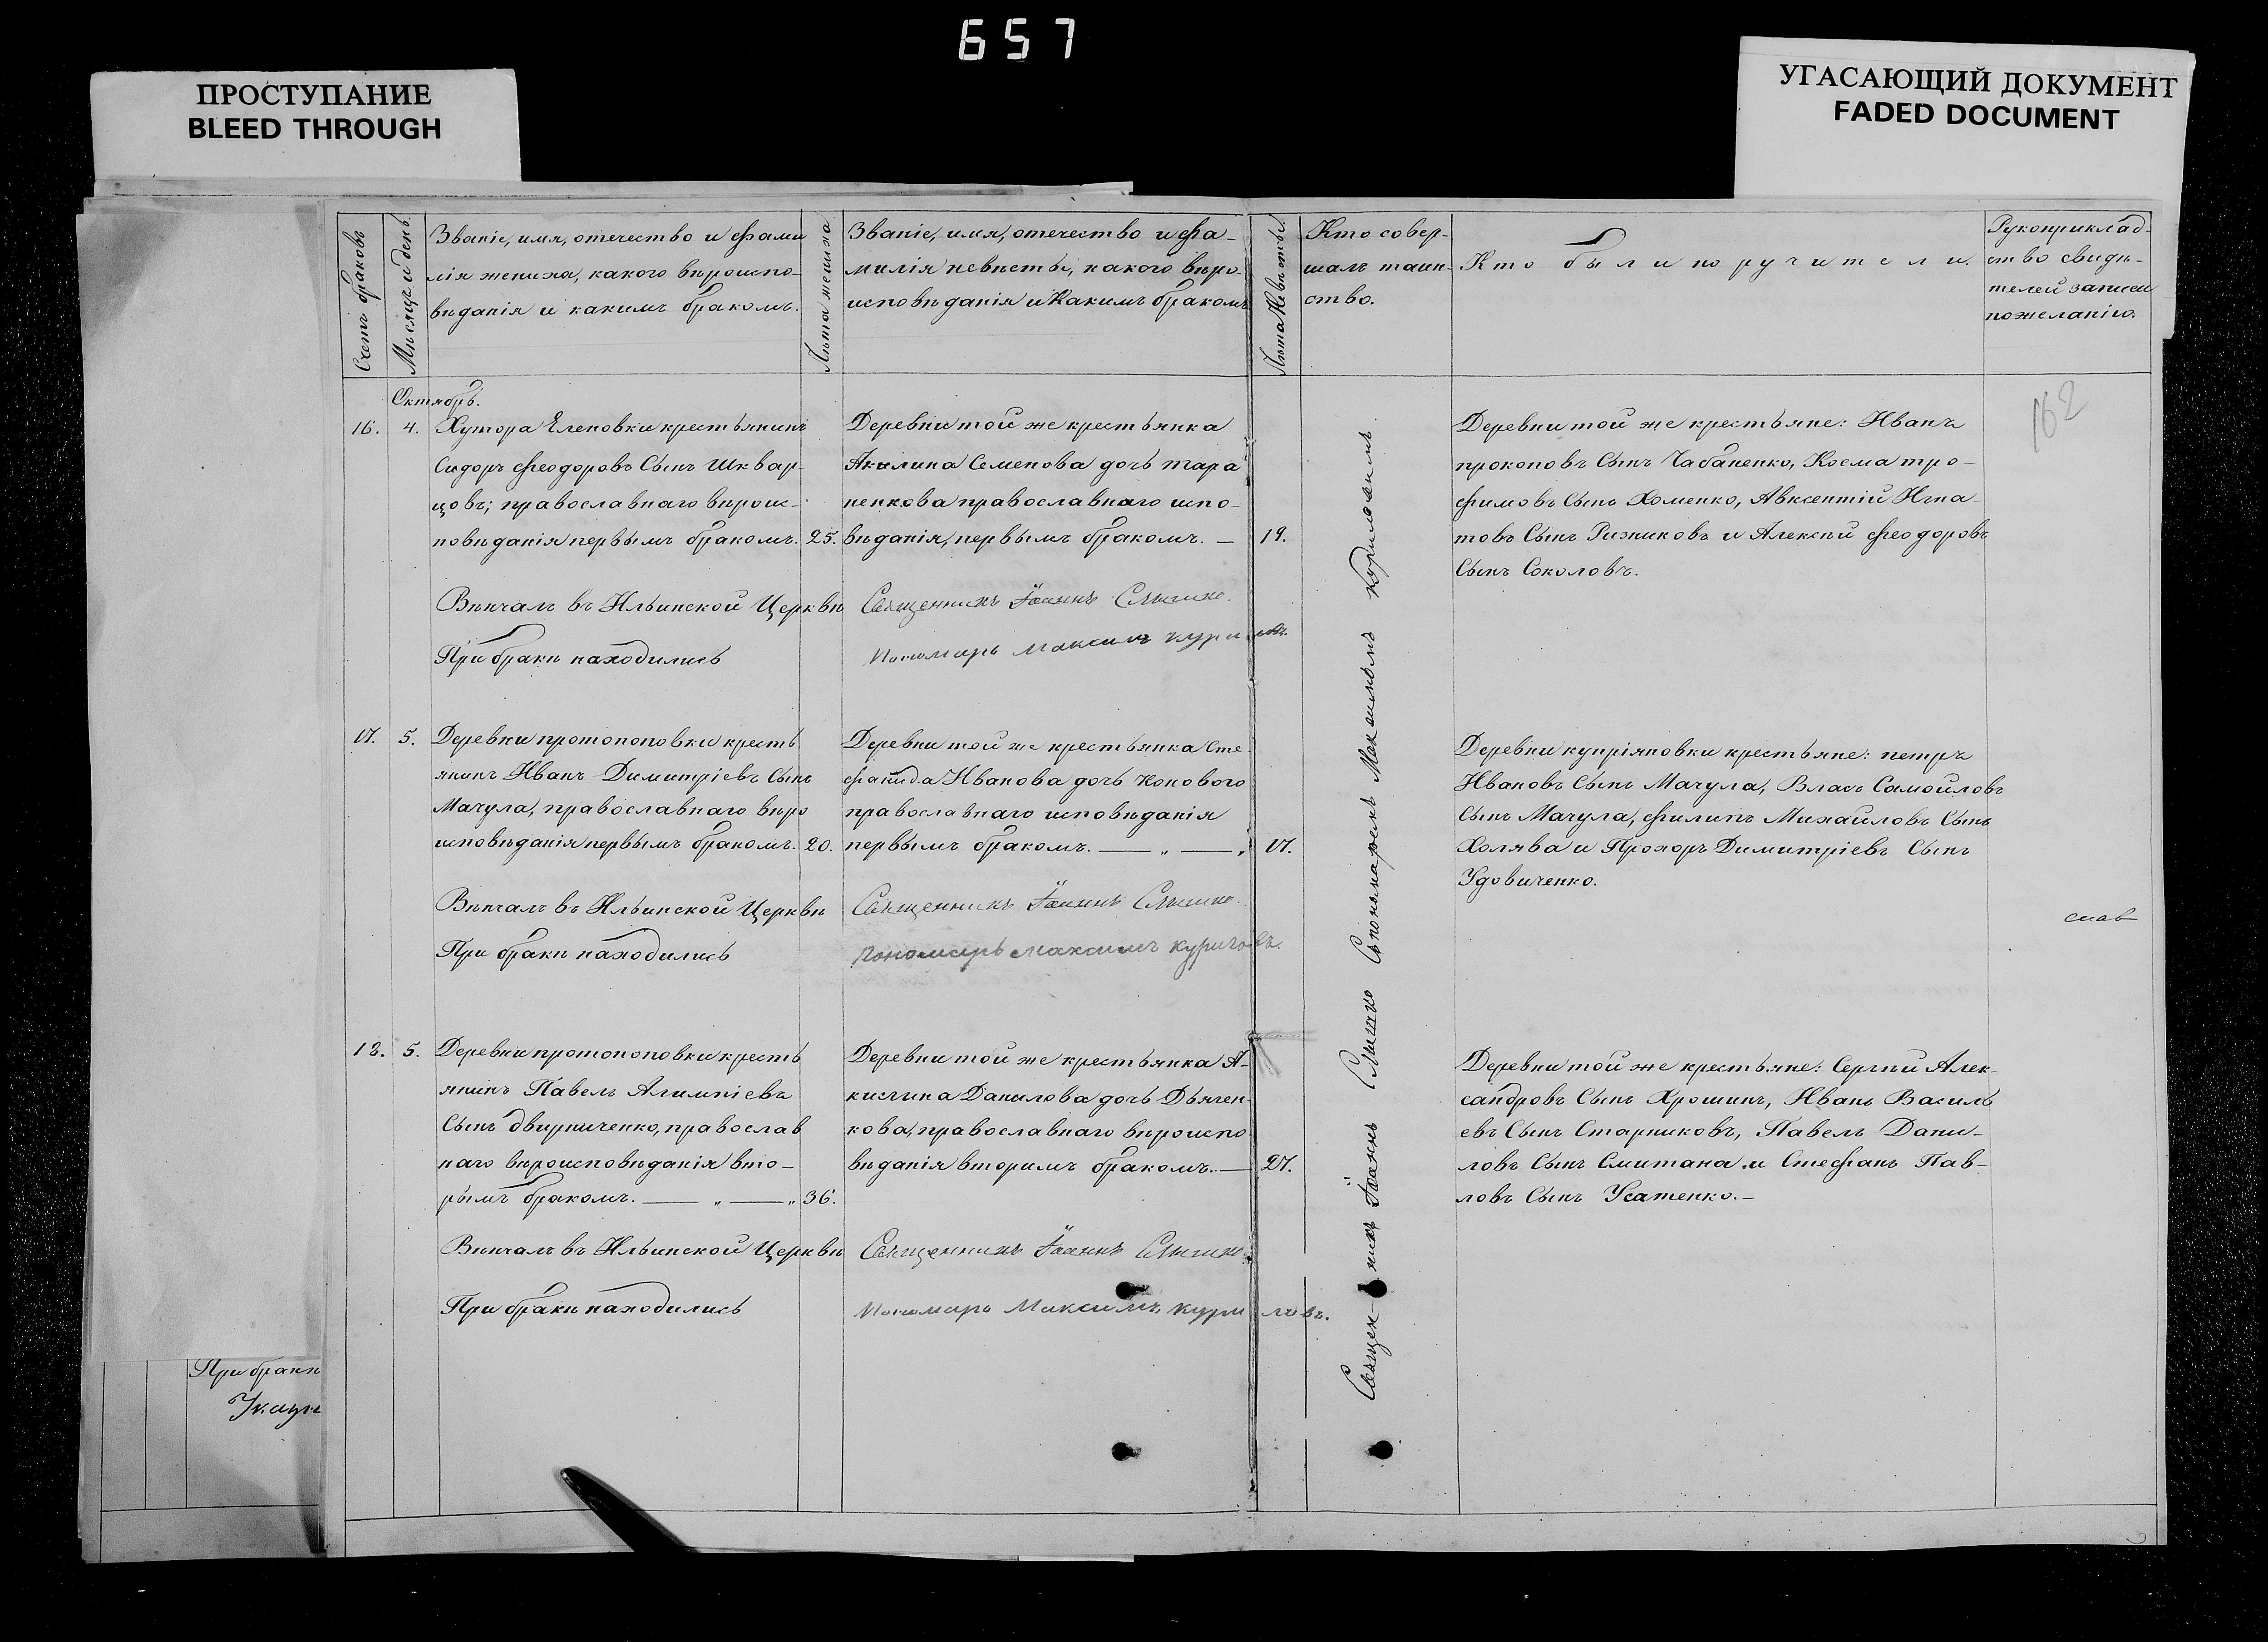 657
ПРОСТУПАНИЕ
BLEED THROUGH
УГАСАЮЩИЙ ДОКУМЕНТ
FADED DOCUMENT
Счетъ браковъ
Мѣсяцъ и день.
Званіе, имя, отечество и фами
лія жениха, какого вѣроиспо-
вѣданія и какимъ бракомъ.
Лѣта жениха
Званіе, имя, отечество и фа-
милія невѣсты, какого вѣро-
исповѣданія и Какимъ бракомъ
Лѣта Невѣсты.
Кто совер-
шалъ таин-
ство.
Кто были поручители.
Рукоприклад-
ство свидѣ-
телей записи
по желанію.
162
Октябрь.
16. 4. Хутора Еленовки крестьянинъ
Сидоръ Феодоровъ Сынъ Шквар-
цовъ; православнаго вѣроис-
повѣданія первымъ бракомъ. 25.
Деревни той же крестьянка
Акилина Семенова дочь тара
ненкова православнаго испо-
вѣданія, первымъ бракомъ. — 19.
Деревни той же крестьяне: Иванъ
прокоповъ Сынъ Чабаненко, Косма тро-
фимовъ Сынъ Хоменко, Авксентій Игна-
товъ Сынъ Ризниковъ и Алексѣй Феодоровъ
Сынъ Соколовъ.
Вѣнчалъ въ Ильинской Церквѣ Священникъ Іоаннъ
При бракѣ находились Пономарь Максимъ
17. 5. Деревни протопоповки кресть
янинъ Иванъ Димитріевъ Сынъ
Мачула, православнаго вѣро
исповѣданія первымъ бракомъ. 20.
Деревни той же крестьянка Сте
фанида Иванова дочь Конового
православнаго исповѣданія
первымъ бракомъ. — „ — „ 17.
Деревни купріяновки крестьяне: петръ
Ивановъ Сынъ Мачула, Власъ Самойловъ
Сынъ Мачула, Филипъ Михайловъ Сынъ
Холява и Прохоръ Димитріевъ Сынъ
Удовиченко.
Вѣнчалъ въ Ильинской Церквѣ Священникъ Іоаннъ
При бракѣ находились Пономарь Максимъ
18. 5. Деревни протопоповки кресть
янинъ Павелъ Алимпіевъ
Сынъ двирниченко, православ
наго вѣроисповѣданія вто-
рымъ бракомъ. — „ — „ 36.
Деревни той же крестьянка А-
килина Данилова дочь Дьячен-
кова, православнаго вѣроиспо
вѣданія вторимъ бракомъ. — 27.
Деревни той же крестьяне: Сергѣй Алек-
сандровъ Сынъ Хрошинъ, Иванъ Василь
евъ Сынъ Старниковъ, Павелъ Дани-
ловъ Сынъ Смитана и Стефанъ Пав-
ловъ Сынъ Усатенко. —
Вѣнчалъ въ Ильинской Церквѣ Священникъ Іоаннъ
При бракѣ находились Пономарь Максимъ
Священникъ Іоаннъ Спономаремъ Максимомъ
При бракѣ